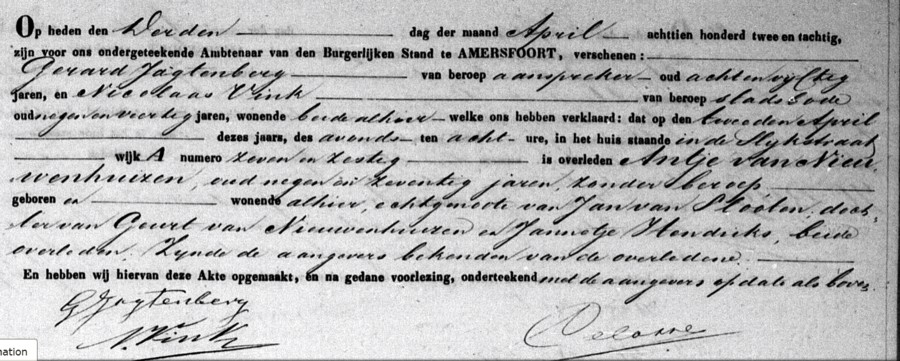 Op heden den Derden dag der maand April achttien honderd twee en tachtig,
zijn voor ons ondergeteekende Ambtenaar van den Burgerlijken Stand te AMERSFOORT, verschenen :
Gerard Jagtenberg van beroep aanspreker oud acht en vyftig
jaren, en Nicolaas Vink van beroep stadsbode
oud negen en veertig jaren, wonende beide alhier welke ons hebben verklaard: dat op den tweeden April
dezes jaars, des avonds ten acht ure, in het huis staande in de Slykstraat
wijk A numero zeven en zestig is overleden Antje van Nieu-
wenhuizen, oud negen en zeventig jaren, zonder beroep
geboren en wonende alhier, echtgenoote van Jan van Slooten, doch-
ter van Geurt van Nieuwenhuizen en Jannetje Hendriks, beide
overleden. Zynde de aangevers bekenden van de overledene.
En hebben wij hiervan deze Akte opgemaakt, en na gedane voorlezing, onderteekend met de aangevers op date als boven
G Jagtenberg
N. Vink
mation